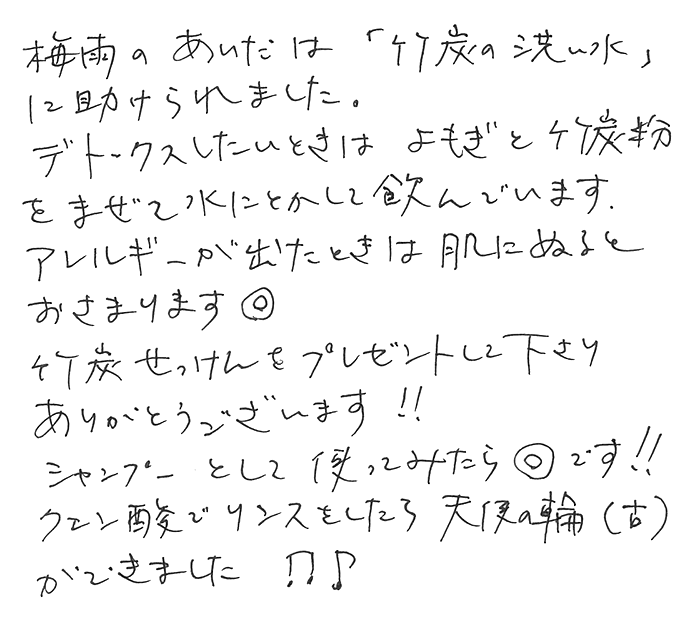 梅雨の あいだは 「竹炭の洗い水」
に助けられました。
デトックスしたいときは よもぎと 竹炭粉
を まぜて 水にとかして 飲んでいます.
アレルギーが 出たときは 肌にぬると
おさまります◎
竹炭 せっけんを プレゼントして 下さり
ありがとうございます!!
シャンプー として 使ってみたら ◎ です!!
クエン酸で リンスをしたら 天使の輪 (古)
ができました ♫♪